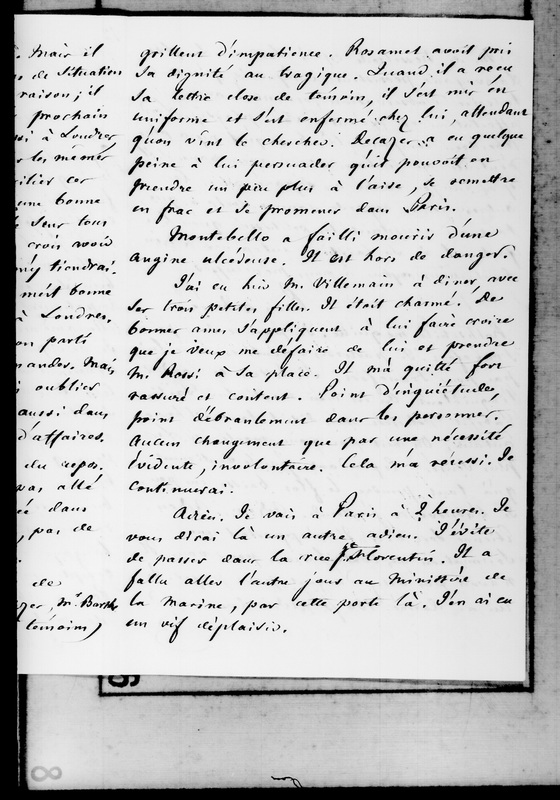 . Mais il
de situation
raison ; il
prochain
à Londres,
les mêmes
cer
une bonne
sur tous
crois avoir
m'y tiendrai.
bonne
à Londres.
parti
mandes. Mais
oublier
aussi dans
d'affaires.
du repos.
pas allé
dans
, pas de
de
, Mr. Barthe
témoins)
grillent d'impatience. Rosamel avoit pris
sa dignité au tragique. Quand il a reçu
sa lettre close de témoin, il s'est mis en
uniforme et s'est enfermé chez lui, attendant
qu'on vînt le chercher. Decazes a eu quelque
peine à lui persuader qu'il pouvoit en
prendre un peu plus à l'aise, se remettre
en frac et se promener dans Paris.
Montebello a failli mourir d'une
angine ulcéreuse. Il est hors de danger.
J'ai eu hier M. Villemain à dîner, avec
ses trois petites filles. Il était charmé. De
bonnes ames s'appliquent à lui faire croire
que je veux me défaire de lui et prendre
M. Rossi à sa place. Il m'a quitté fort
rassuré et content. Point d'inquiétude,
point d'ébranlement dans les personnes.
Aucun changement que par une nécessité
évidente, involontaire. Cela m'a réussi. Je
continuerai.
Adieu. Je vais à Paris à 2 heures. Je
vous dirai là un autre adieu. J'évite
de passer dans la rue St. Florentin. Il a
fallu aller l'autre jour au Ministère de
la marine, par cette porte là. J'en ai eu
un vif déplaisir.